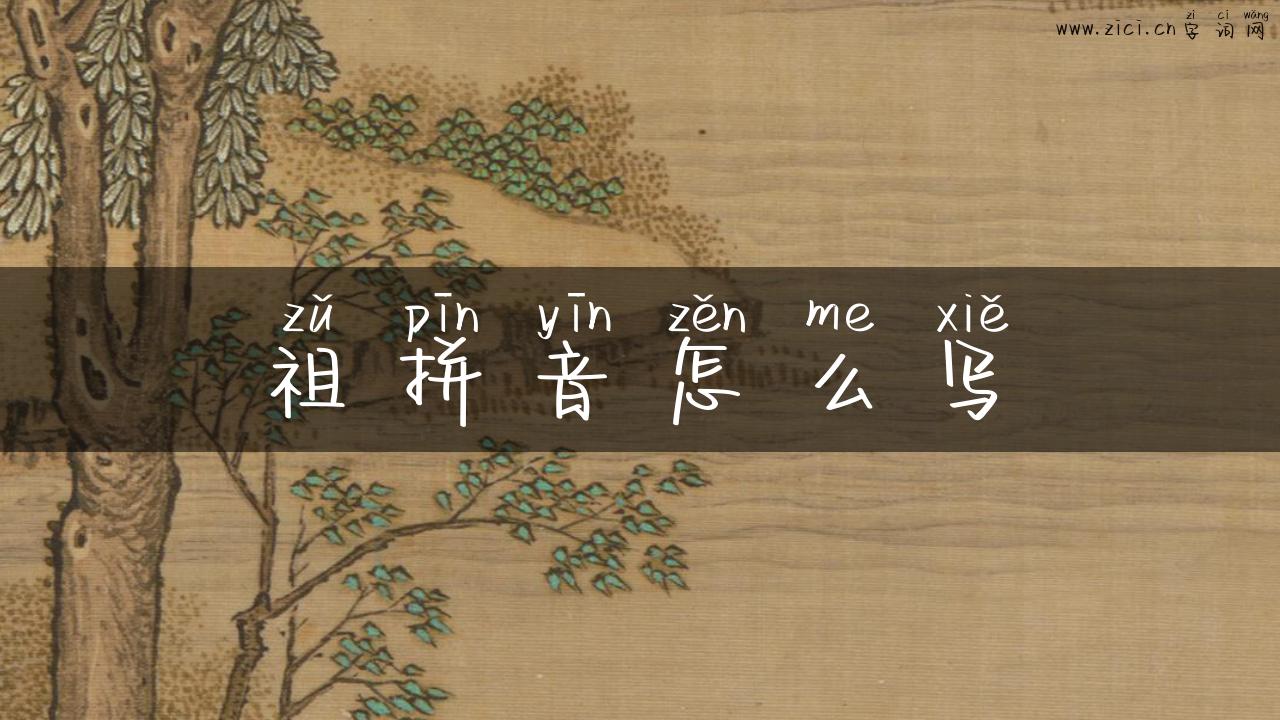 zì cí wǎng
www.zici.cn 字 词 网
zǔ pīn yīn zěn me xiě
祖 拼 音 怎 么 写